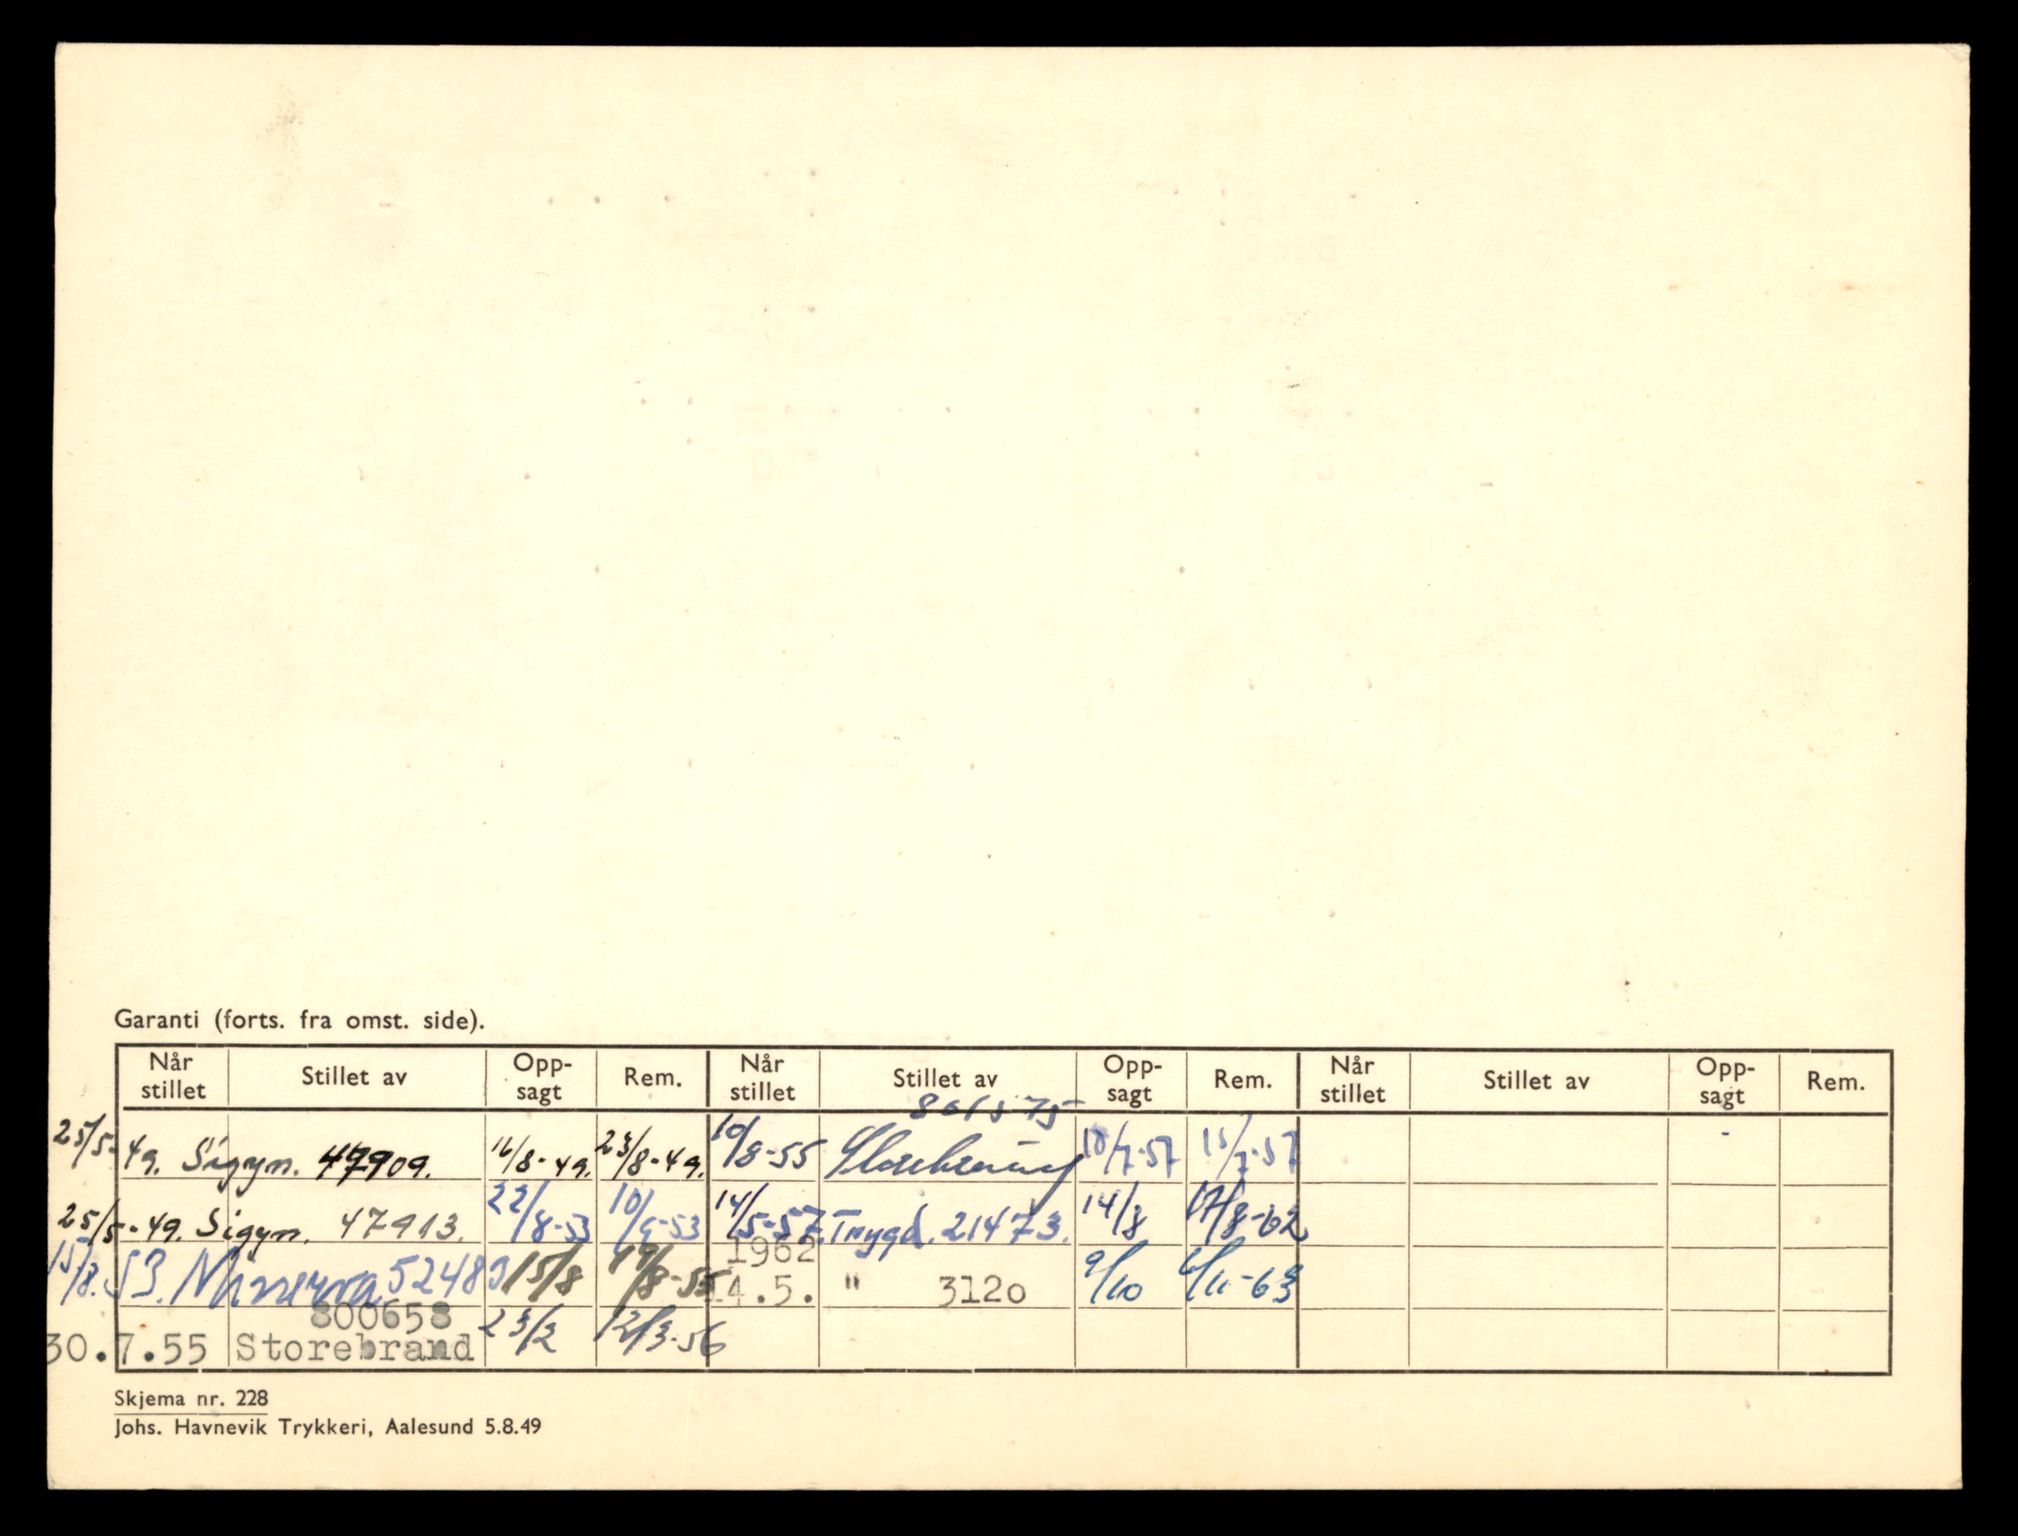 Garanti (forts. fra omst. side).
Når stillet Stillet av Opp-sagt Rem. Når stillet Stillet av Opp-sagt Rem. Når stillet Stillet av Opp-sagt Rem.
25/5-49. Sigyn. 47909. 16/8-49. 23/8-49. 10/8-55 Storebrand 801575 10/7-57 15/7-57
25/5-49. Sigyn. 47913. 22/8-53 10/9-53 14/5-57. Trygd. 21473. 14/8 17/8-62
15/8.53. Minerva 52489 15/8 19/8-55 1962 14.5. " 3120 9/10 6/11-63
30.7.55 Storebrand 800658 23/2 12/3-56
Skjema nr. 228
Johs. Havnevik Trykkeri, Aalesund 5.8.49